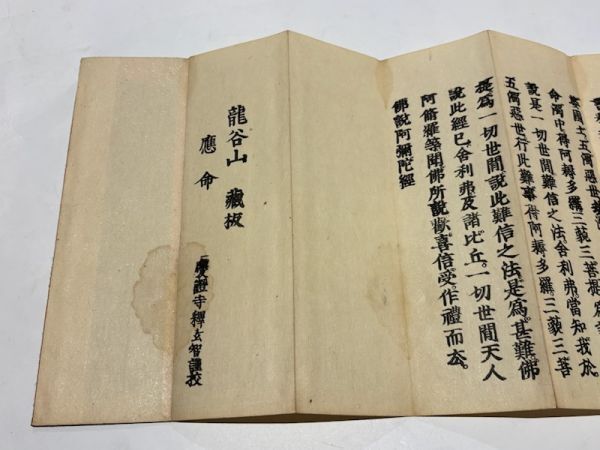 善國土五濁惡世
命濁中得阿耨多羅三藐三菩提爲
說是一切世間難信之法舍利弗當知我於
五濁惡世行此難事得阿耨多羅三藐三菩
提爲一切世間說此難信之法是爲甚難佛
說此經已舍利弗及諸比丘一切世間天人
阿脩羅等聞佛所說歡喜信受作禮而去
佛說阿彌陀經
龍谷山 藏板
應命
慶證寺釋玄智謹校